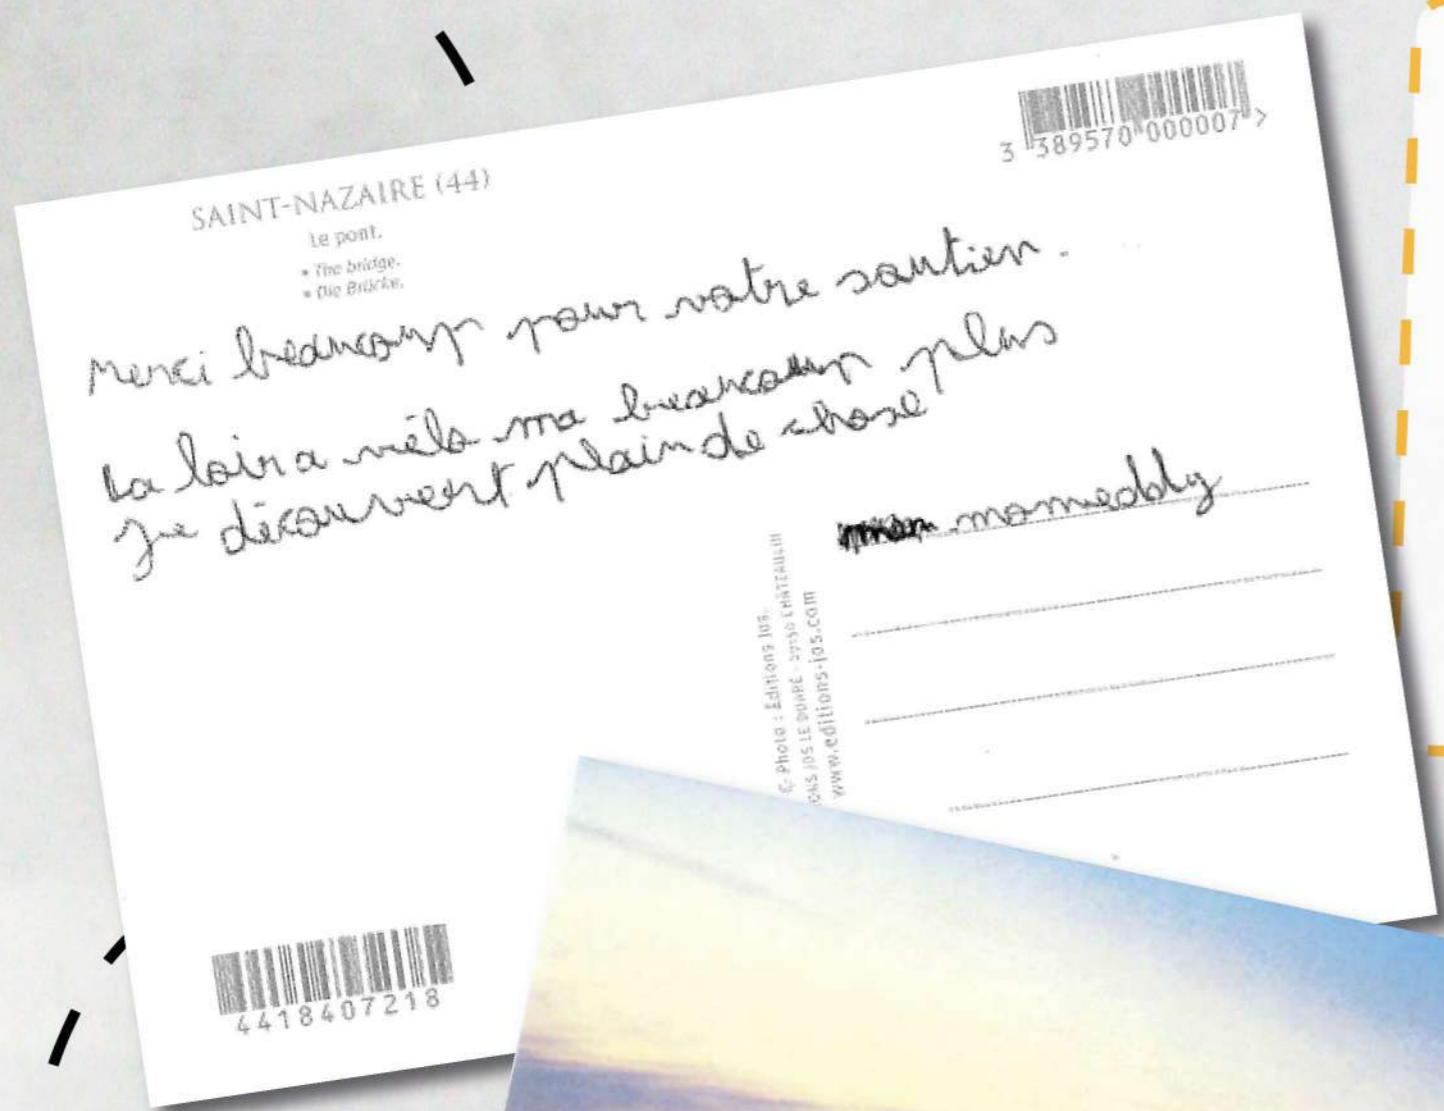 SAINT-NAZAIRE (44)
Le pont.
• The bridge.
• Die Brücke.
3 389570 000007 >
Merci beaucoup pour votre soutien.
La loir a vélo ma beaucoup plus
Je découvert plain de chose
momeddy
Photo : Éditions Jos.
JOS LE DOARÉ - 29150 CHÂTEAULIN
www.editions-jos.com
4418407218